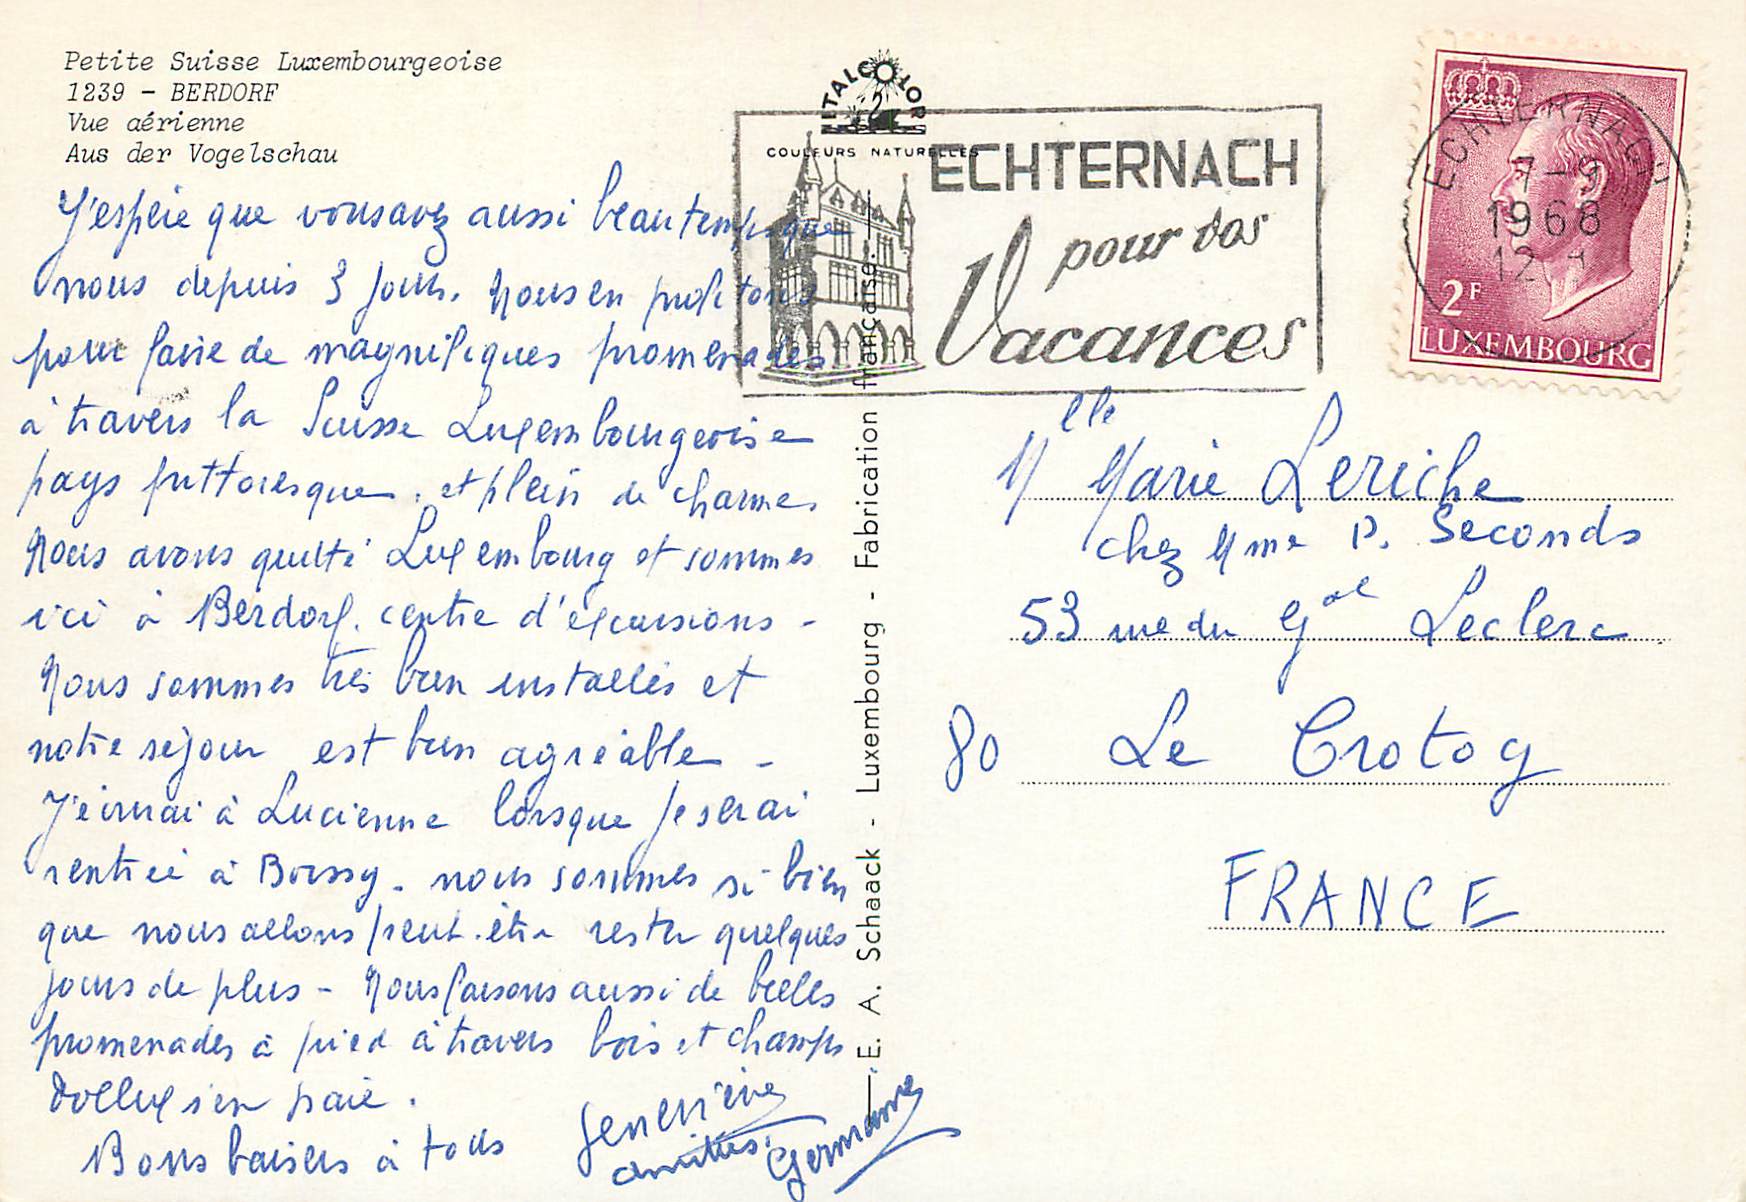 Petite Suisse Luxembourgeoise
1239 - BERDORF
Vue aérienne
Aus der Vogelschau
ITALCOLOR
COULEURS NATURELLES
ECHTERNACH
pour vos
Vacances
ECHTERNACH
7-9
1968
12
2F
LUXEMBOURG
J'espère que vous avez aussi beau temps que
nous depuis 3 jours. Nous en profitons
pour faire de magnifiques promenades
à travers la Suisse Luxembourgeoise
pays pittoresque et plein de charmes
Nous avons quitté Luxembourg et sommes
ici à Berdorf. centre d'excursions -
Nous sommes très bien installés et
notre séjour est bien agréable -
J'écrirai à Lucienne lorsque je serai
rentrée à Boissy. nous sommes si bien
que nous allons peut-être rester quelques
jours de plus - Nous faisons aussi de belles
promenades à pied à travers bois et champs
Dollux s'en paie.
Bons baisers à tous
Geneviève
amitiés. Germaine
E. A. Schaack - Luxembourg - Fabrication française.
Mlle Marie Leriche
chez Mme P. Seconds
53 rue du Gal Leclerc
80 Le Crotoy
FRANCE